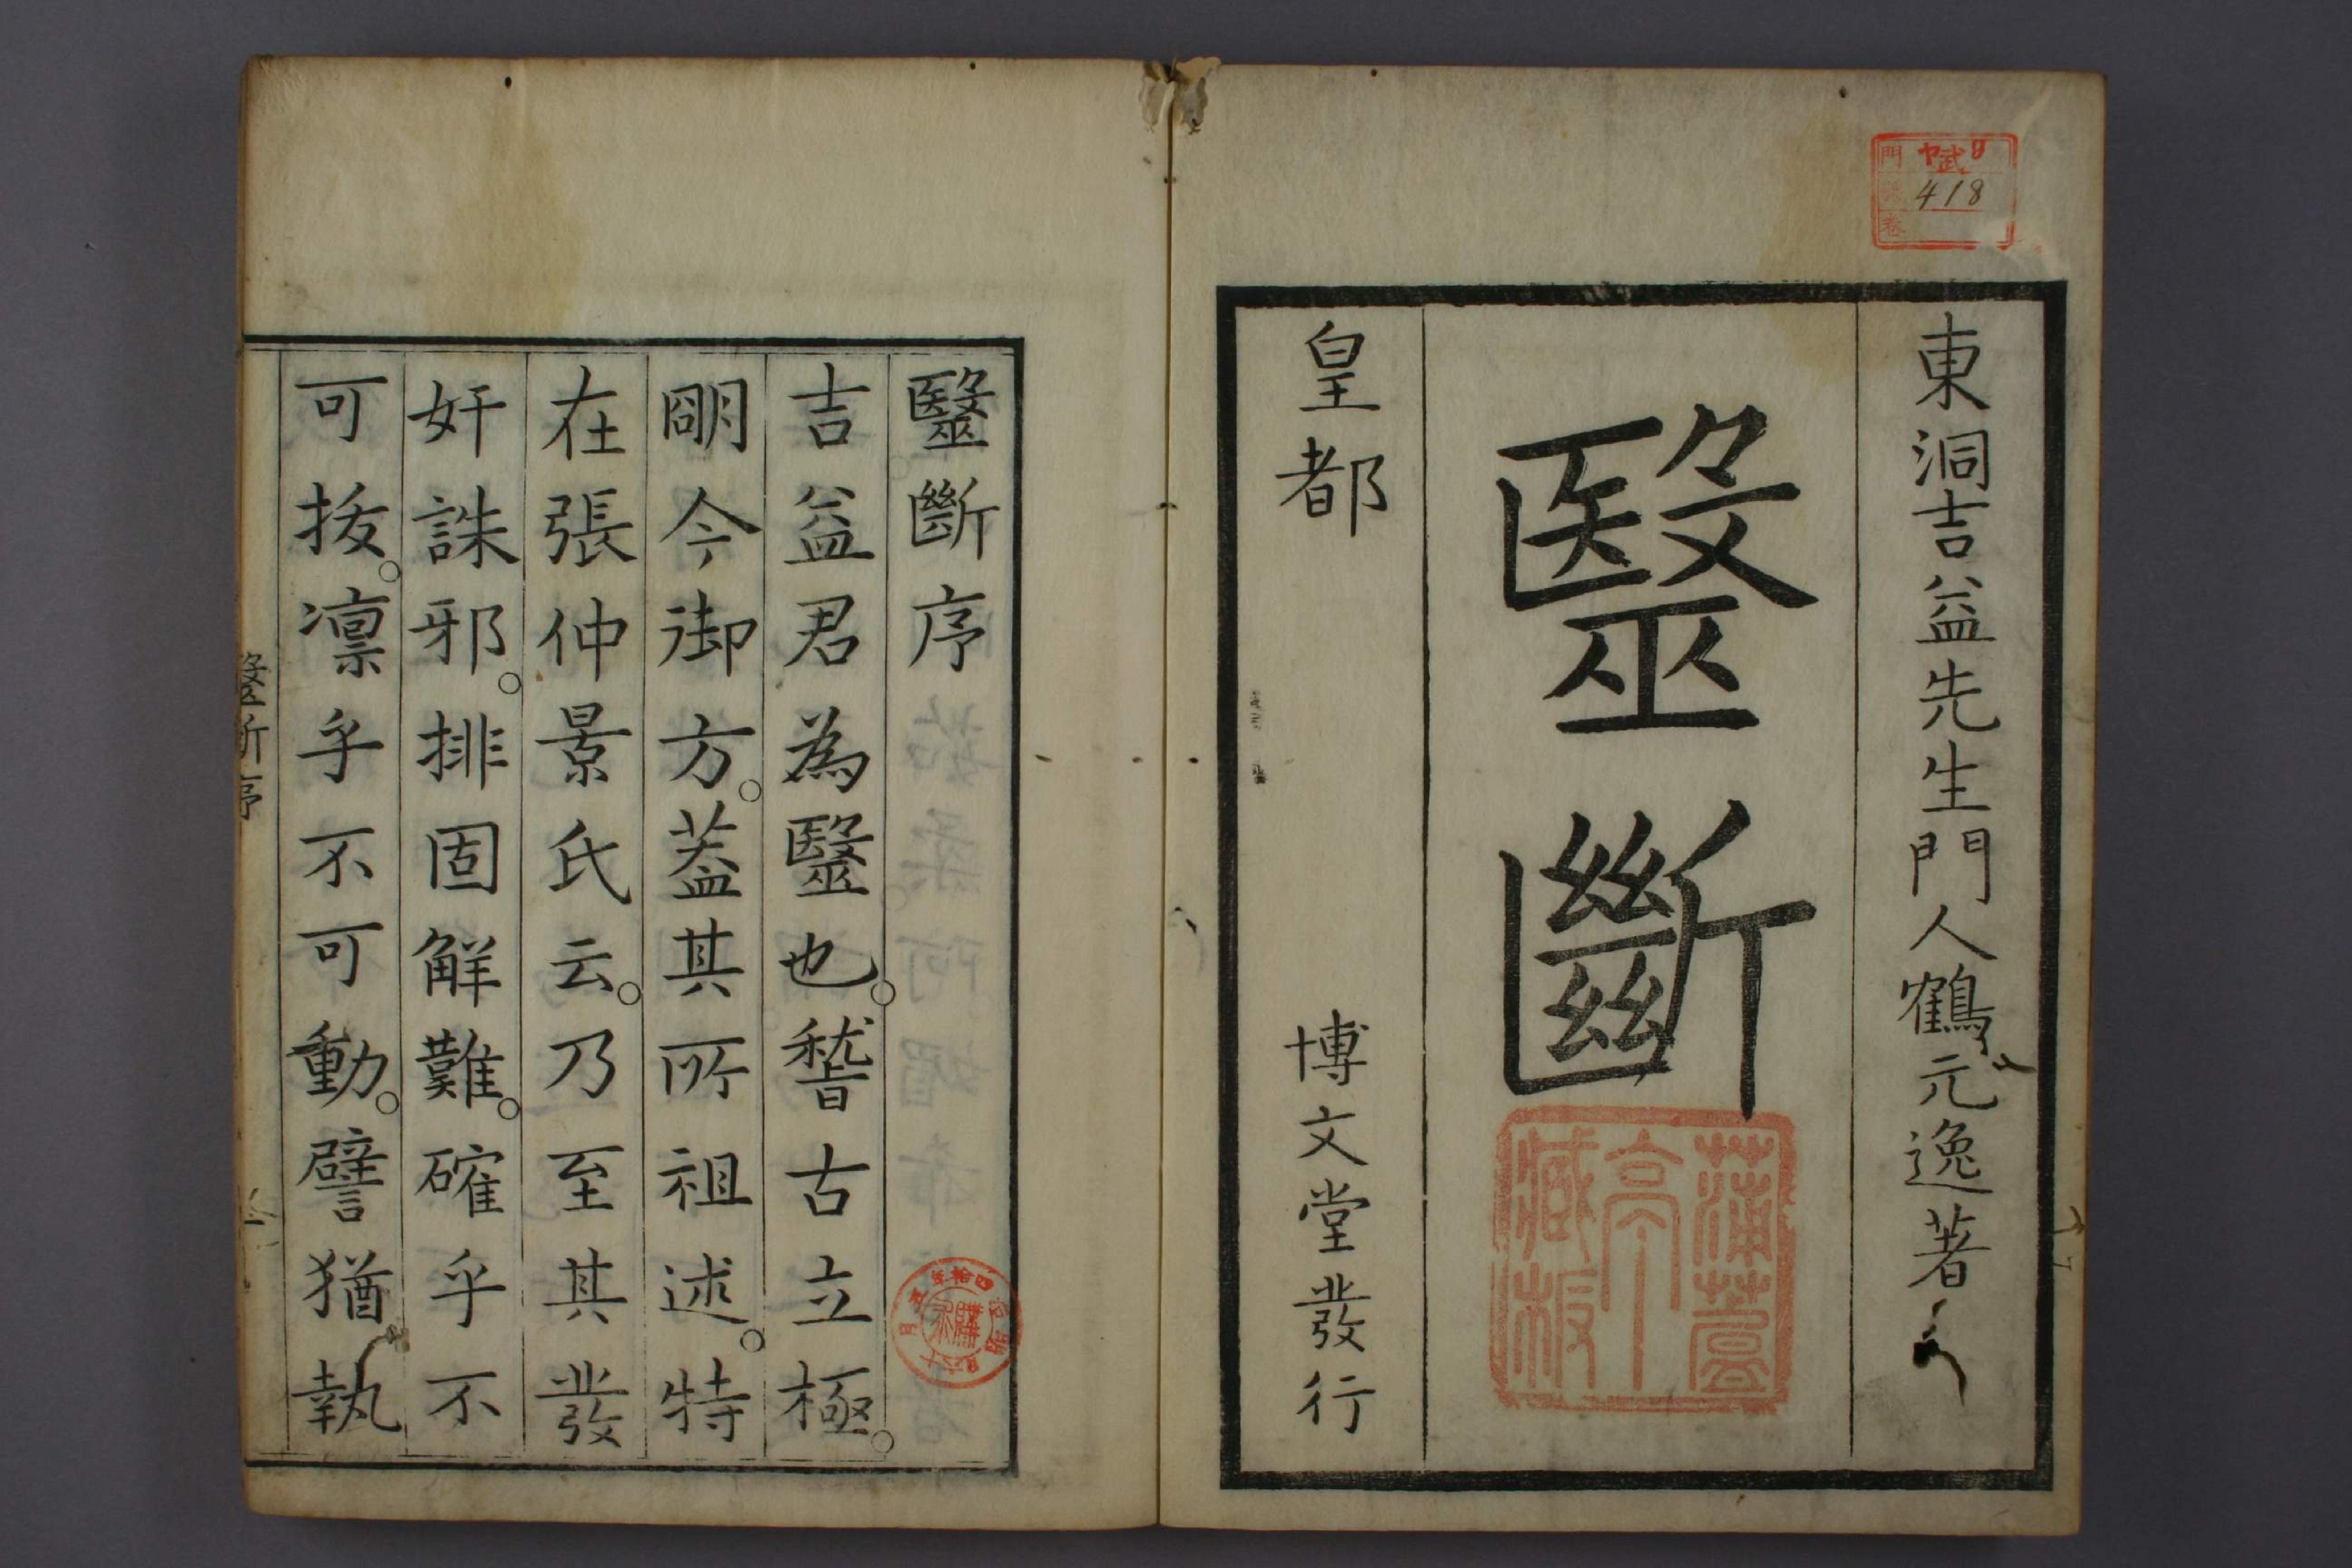 418
東洞吉益先生門人鶴元逸著
毉斷
蒲葊亭藏板
皇都 博文堂發行
毉斷序
吉益君為毉也。嵆古立極。
朙今御方。蓋其所祖述。特
在張仲景氏云。乃至其發
奸誅邪。排固觧難。確乎不
可拔。凛乎不可動。譬猶執
毉斷序